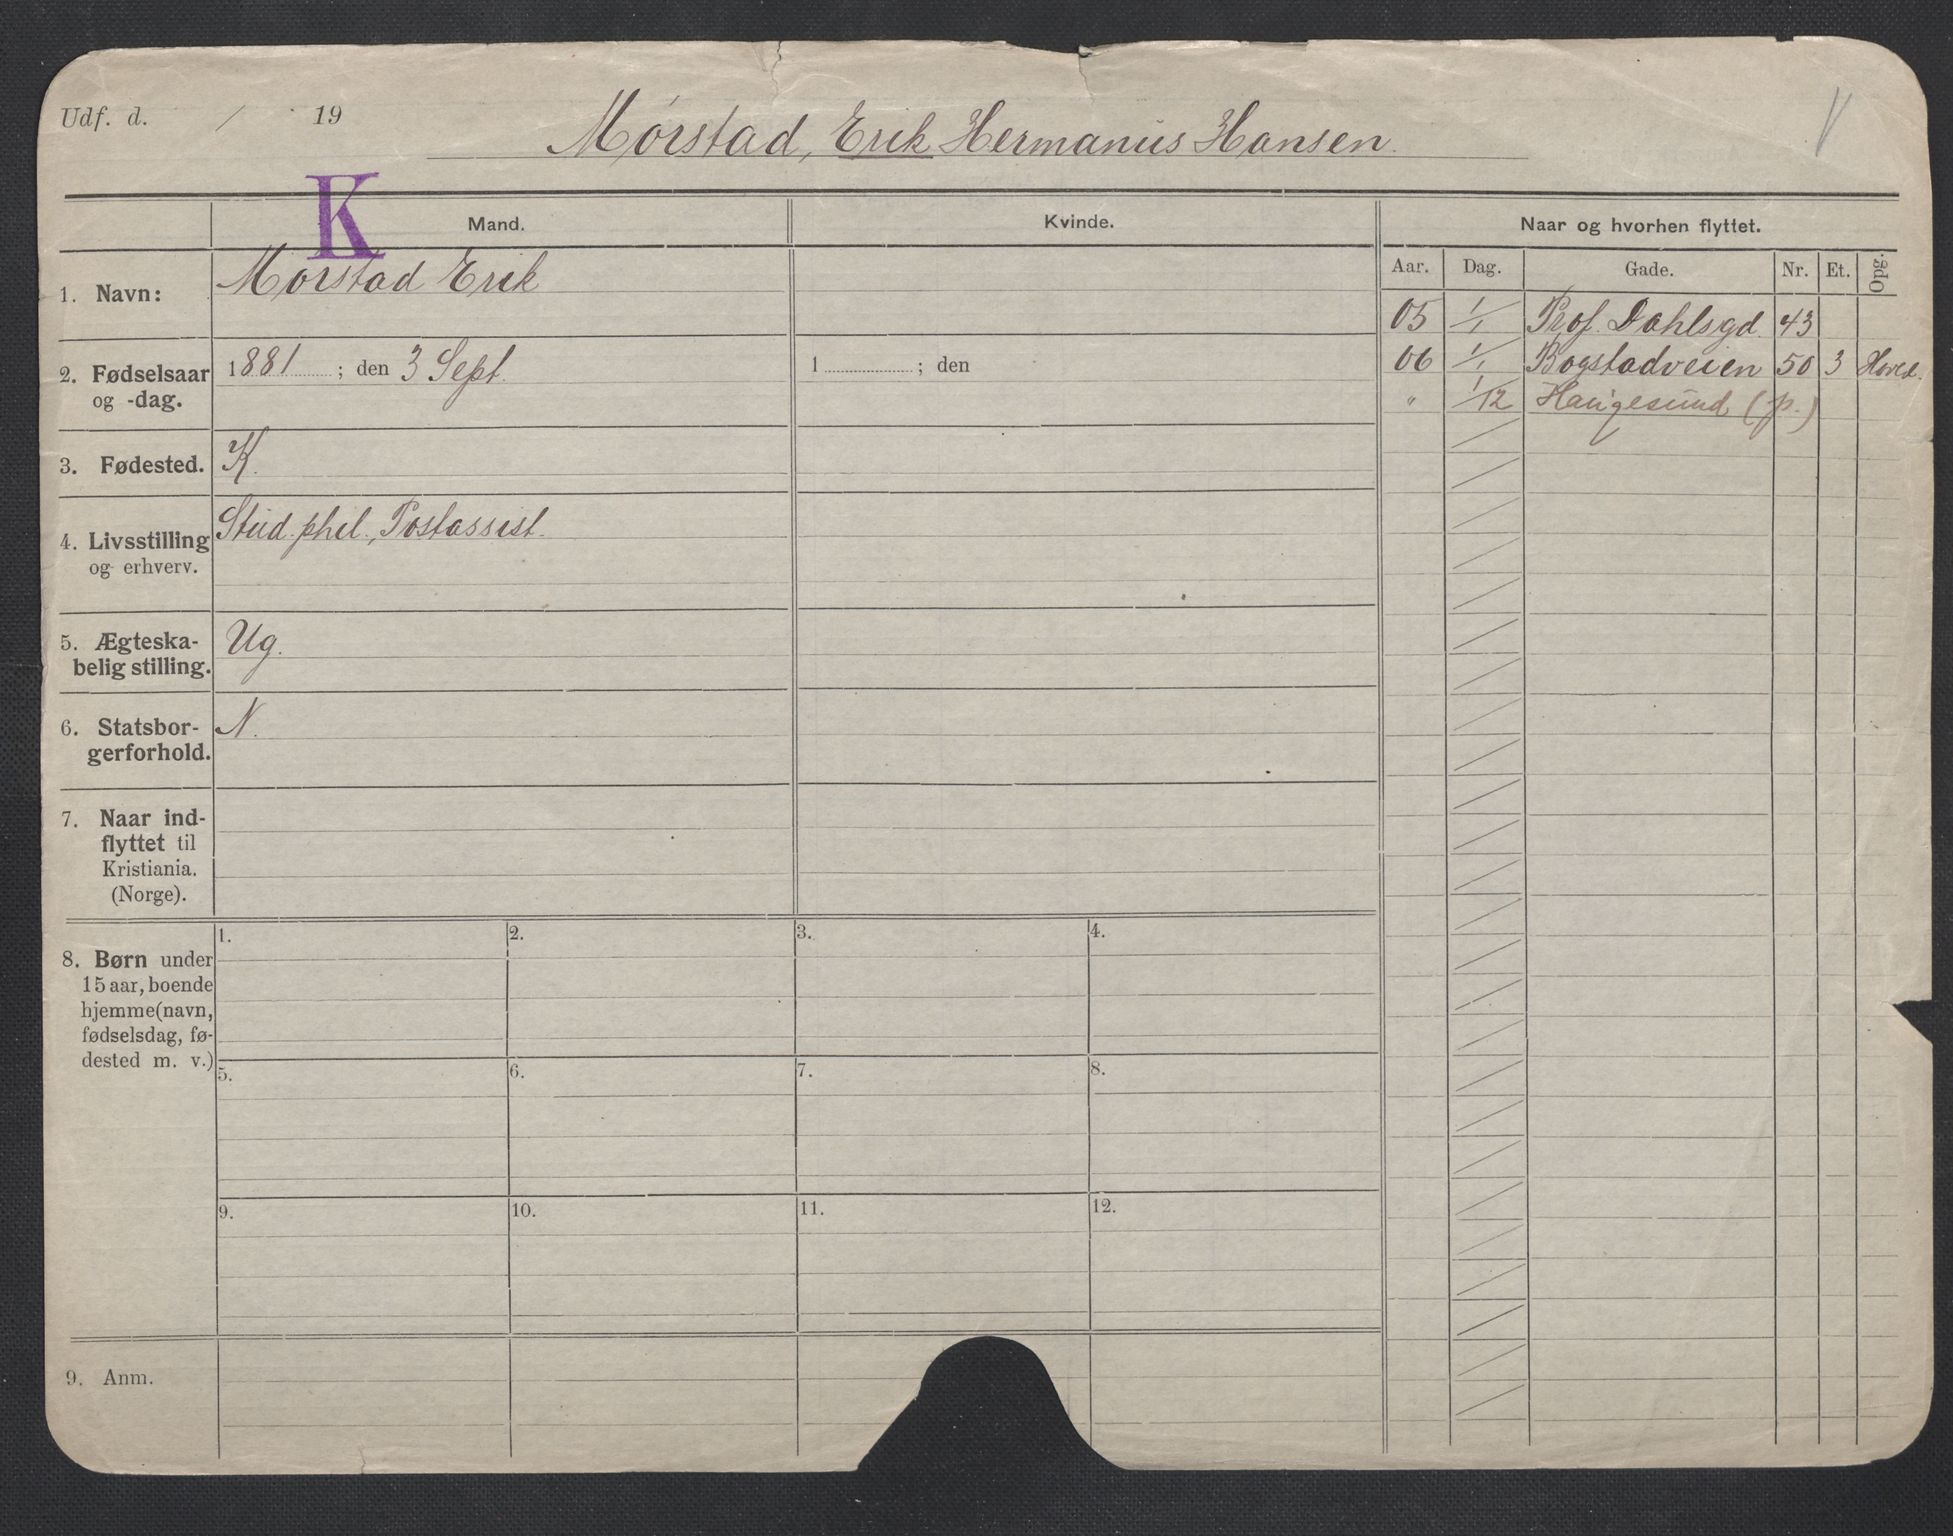 Udf. d. / 19
Mørstad, Erik Hermanus Hansen.
K
Mand.
Kvinde.
Naar og hvorhen flyttet.
Aar. Dag. Gade. Nr. Et. Opg.
1. Navn: Mørstad Erik
05 1/1 Prof. Dahlsgd. 43
2. Fødselsaar og -dag. 1881 ; den 3 Sept.
1 ; den
06 1/1 Bogstadveien 50 3 Hoved.
" 1/12 Haugesund (p.)
3. Fødested. K.
4. Livsstilling og erhverv. Stud. phil., Postassist.
5. Ægteska-
belig stilling. Ug.
6. Statsbor-
gerforhold. N.
7. Naar ind-
flyttet til
Kristiania.
(Norge).
8. Børn under
15 aar, boende
hjemme (navn,
fødselsdag, fø-
dested m. v.)
1. 2. 3. 4.
5. 6. 7. 8.
9. 10. 11. 12.
9. Anm.